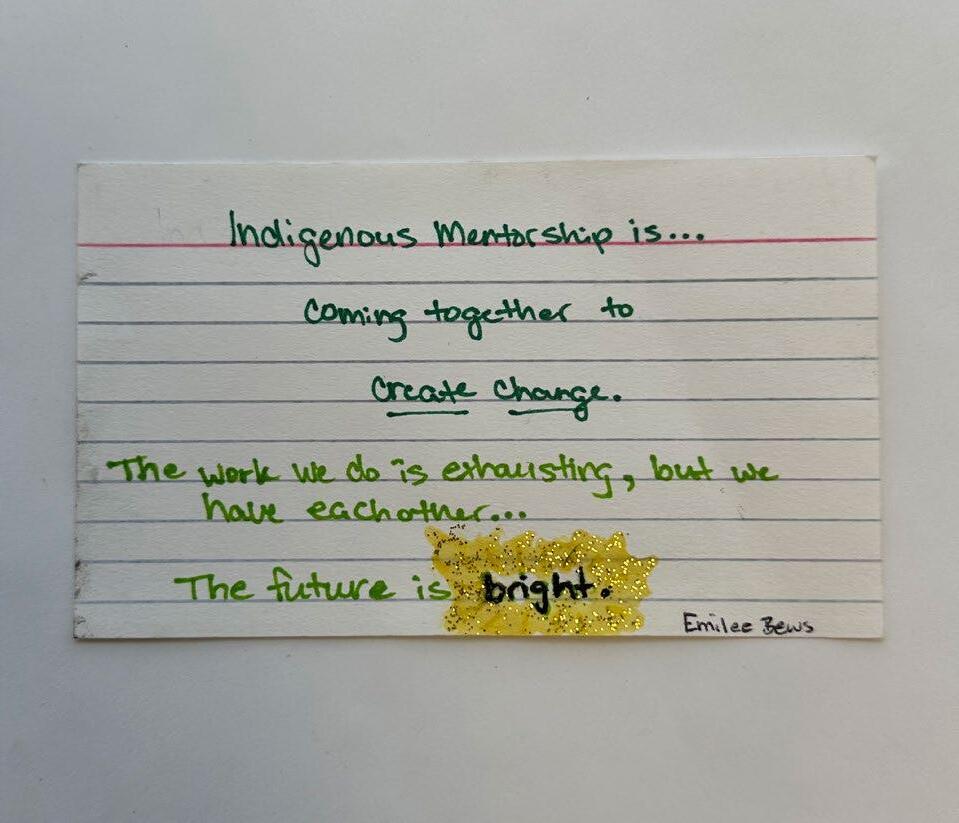 Indigenous Mentorship is...
coming together to
create change.
The work we do is exhausting, but we
have eachother...
The future is bright.
Emilee Bews